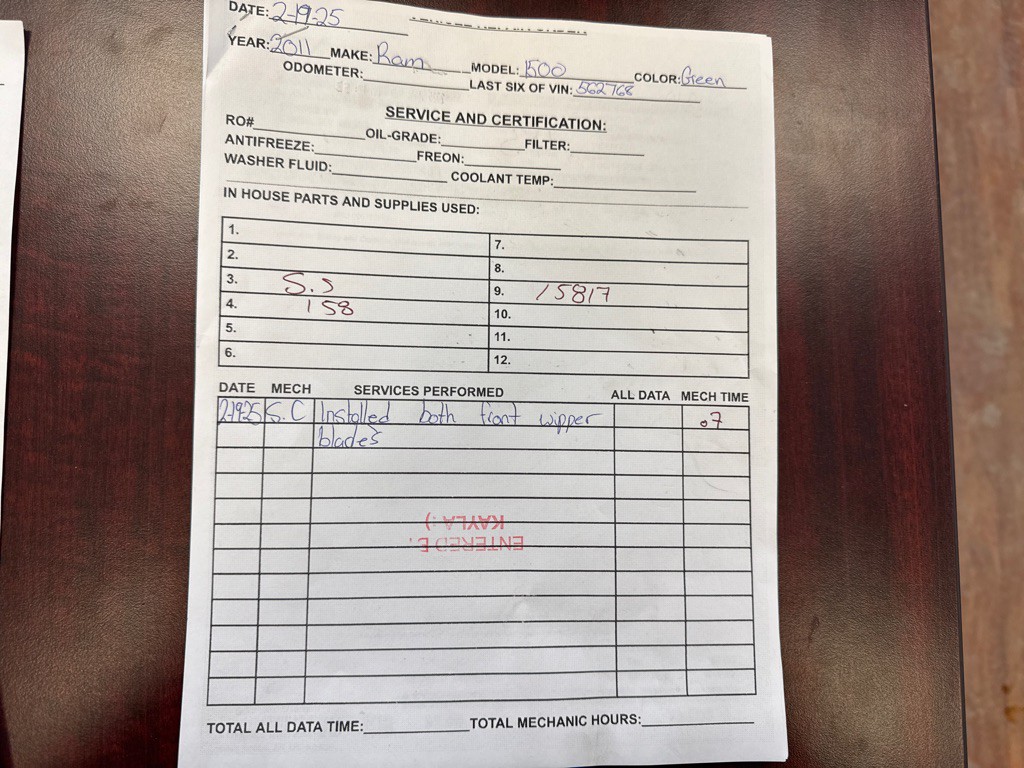 DATE: 2-19-25
YEAR: 2011 MAKE: Ram MODEL: 1500 COLOR: Green
ODOMETER: LAST SIX OF VIN: 562768
SERVICE AND CERTIFICATION:
RO# OIL-GRADE: FILTER:
ANTIFREEZE: FREON:
WASHER FLUID: COOLANT TEMP:
IN HOUSE PARTS AND SUPPLIES USED:
1. 7.
2. 8.
3. S.S 9. 15817
4. 158 10.
5. 11.
6. 12.
DATE MECH SERVICES PERFORMED ALL DATA MECH TIME
2-19-25 S.C Installed both front wipper .07
blades
ENTERED
KAYLA :)
TOTAL ALL DATA TIME: TOTAL MECHANIC HOURS: